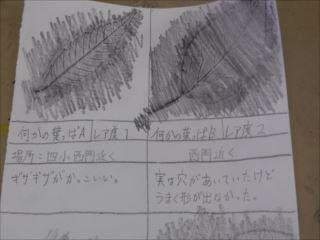 何かの葉っぱA レア度1
場所:四小西門近く
ギザギザがかっこいい。
何かの葉っぱB レア度2
西門近く
実は穴があいていたけど
うまく形が出なかった。